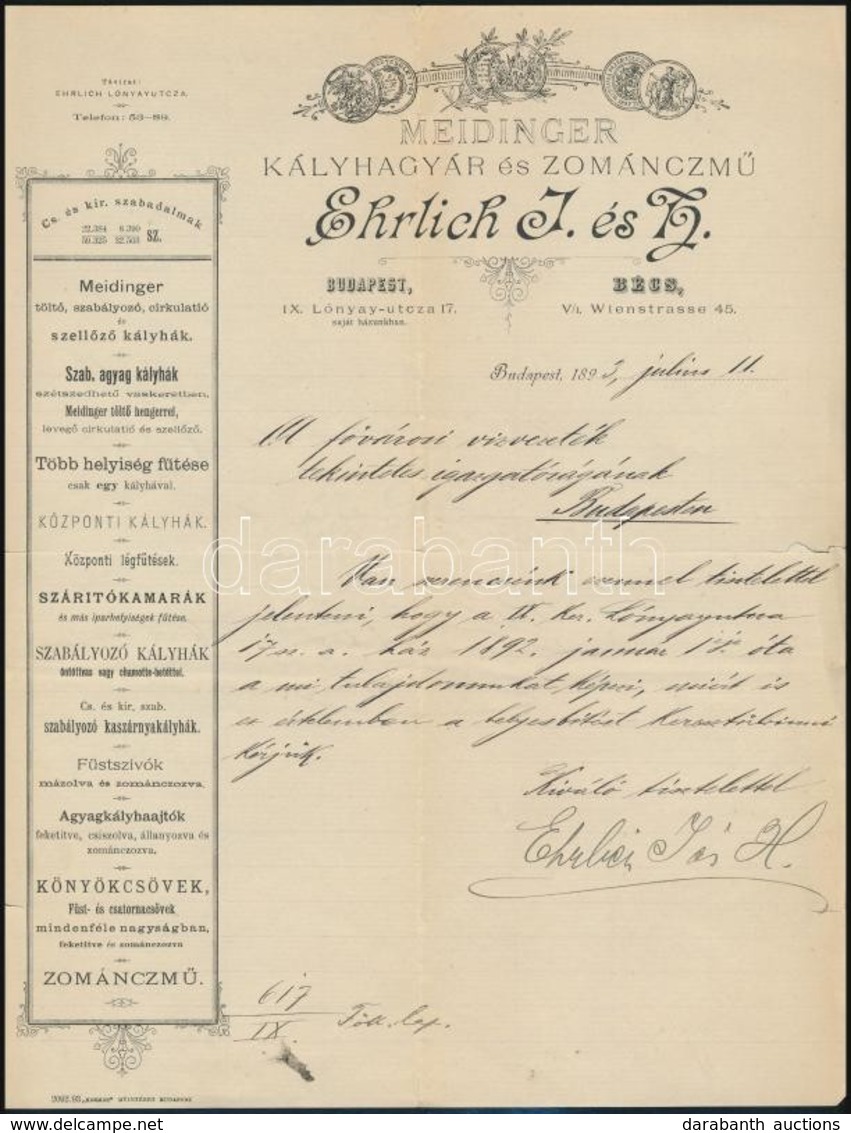 Távirat:
EHRLICH LÓNYAYUTCZA.
Telefon: 53–89.
MEIDINGER
KÁLYHAGYÁR és ZOMÁNCZMŰ
Ehrlich J. és H.
BUDAPEST,
IX. Lónyay-utcza 17.
saját házunkban.
BÉCS,
V/1. Wienstrasse 45.
Cs. és kir. szabadalmak
22.384 6.390
59.325 32.503 sz.
Meidinger
töltő, szabályozó, cirkulatió
és
szellőző kályhák.
Szab. agyag kályhák
szétszedhető vaskeretben,
Meidinger töltő hengerrel,
levegő cirkulatió és szellőző.
Több helyiség fűtése
csak egy kályhával.
KÖZPONTI KÁLYHÁK.
Központi légfűtések.
SZÁRITÓKAMARÁK
és más iparhelyiségek fűtése.
SZABÁLYOZÓ KÁLYHÁK
öntöttvas vagy chamotte-betéttel.
Cs. és kir. szab.
szabályozó kaszárnyakályhák.
Füstszivók
mázolva és zománczozva.
Agyagkályhaajtók
feketitve, csiszolva, állanyozva és
zománczozva.
KÖNYÖKCSÖVEK,
Füst- és csatornacsövek
mindenféle nagyságban,
feketitve és zománczozva
ZOMÁNCZMŰ.
Budapest, 1893, július 11.
A fővárosi vizvezeték
tekintetes igazgatóságának
Budapesten
Van szerencsénk ezennel tisztelettel
jelenteni, hogy a IX. ker. Lónyayutcza
17 sz. a. ház 1892. január 1 óta
a mi tulajdonunkat képezi, miért is
ez értelemben a helyesbitést keresztülvinni
kérjük.
Kiváló tisztelettel
Ehrlich J és H.
617
IX.
darabanth
2092.93. „KOSMOS" MŰINTÉZET BUDAPEST
darabanth auctions